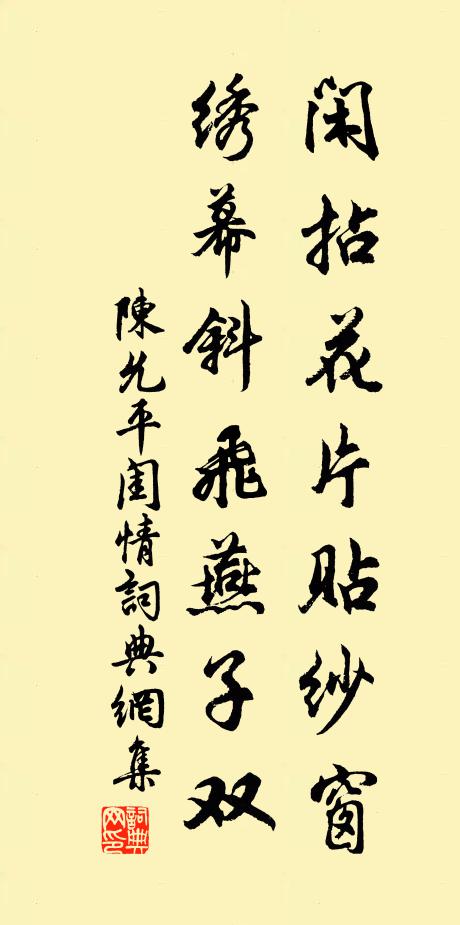 闲拈花片贴纱窗
绣幕斜飞燕子双
陳允平闺情詞典網集
詞典网印